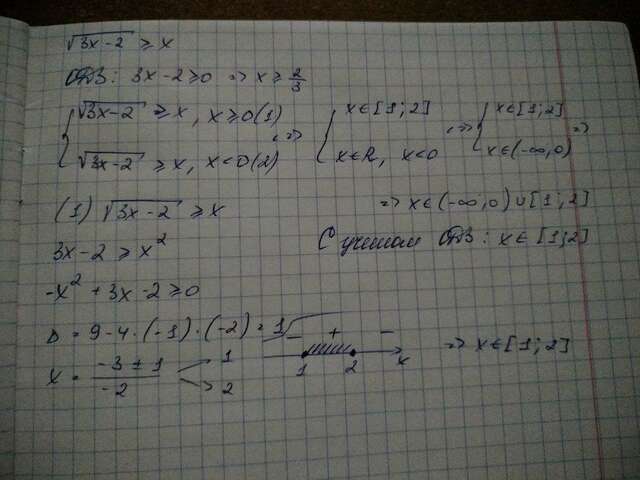 √3x-2 ≥ x
ОДЗ: 3x-2≥0 => x ≥ 2/3
{ √3x-2 ≥ x, x≥0 (1)
√3x-2 ≥ x, x<0 (2) <=> { x∈[1;2]
x∈R, x<0 <=> { x∈[1;2]
x∈(-∞,0) =>
=> x∈(-∞,0)∪[1;2]
С учетом ОДЗ: x∈[1;2]
(1) √3x-2 ≥ x
3x-2 ≥ x²
-x² + 3x-2≥0
D = 9-4·(-1)·(-2) = 1
x = (-3 ± 1)/(-2) → 1
→ 2
- + -
1 2 x
=> x∈[1;2]